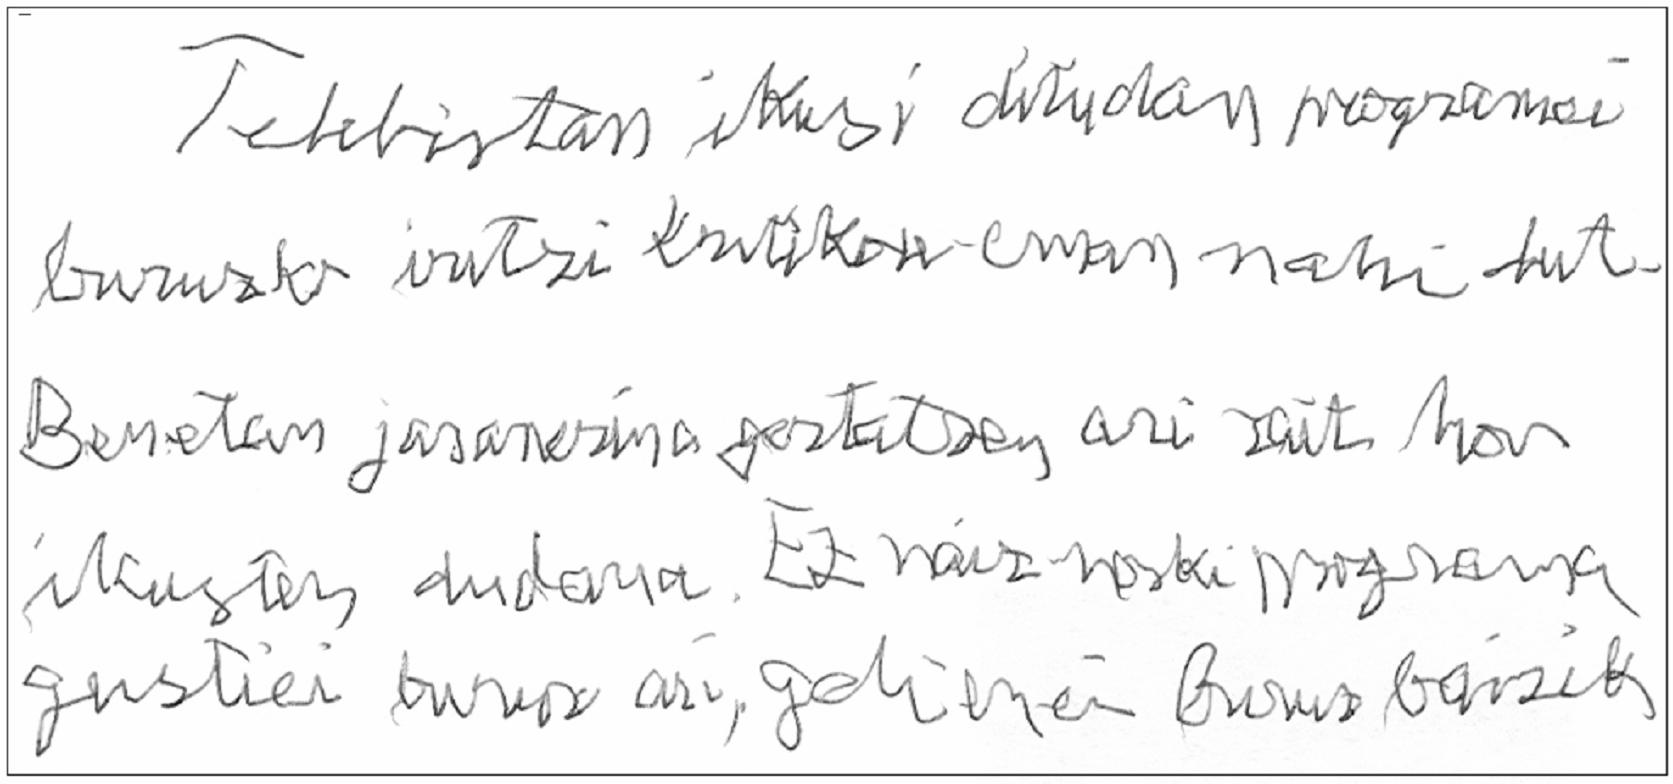 Telebistan ikusi ditudan programei
buruzko iritzi kritikoa eman nahi dut.
Benetan jasanezina gertatzen ari zait hor
ikusten dudana. Ez naiz noski programa
guztiei buruz ari, gehienei buruz baizik